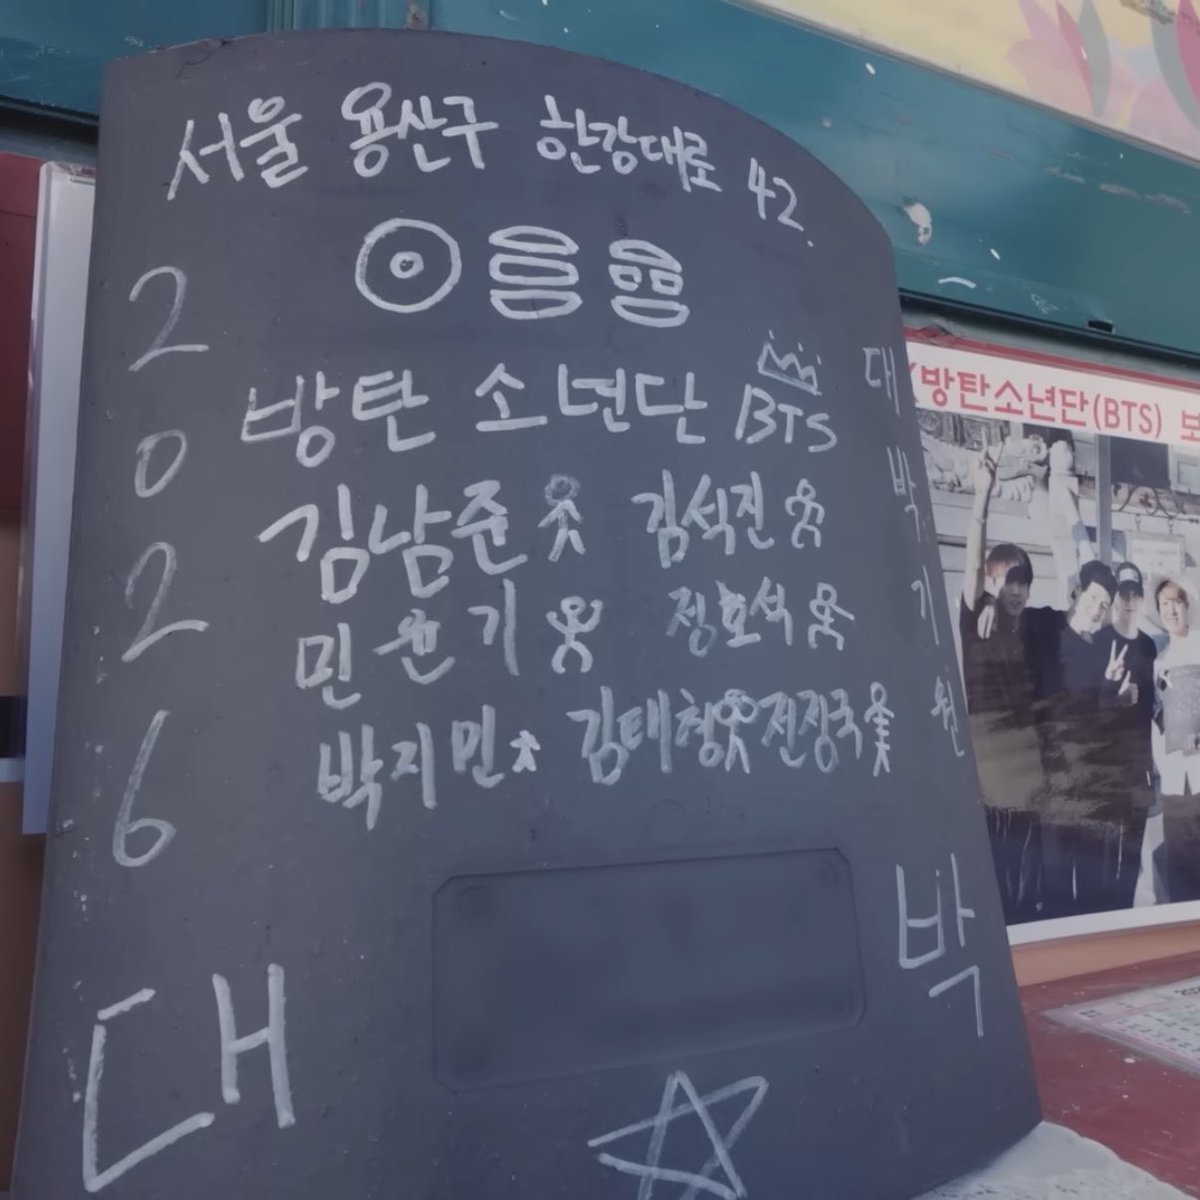 서울 용산구 한강대로 42.
2026
방탄 소년단 BTS
김남준 김석진
민윤기 정호석
박지민 김태형 전정국
대박기원
대박
<방탄소년단(BTS)